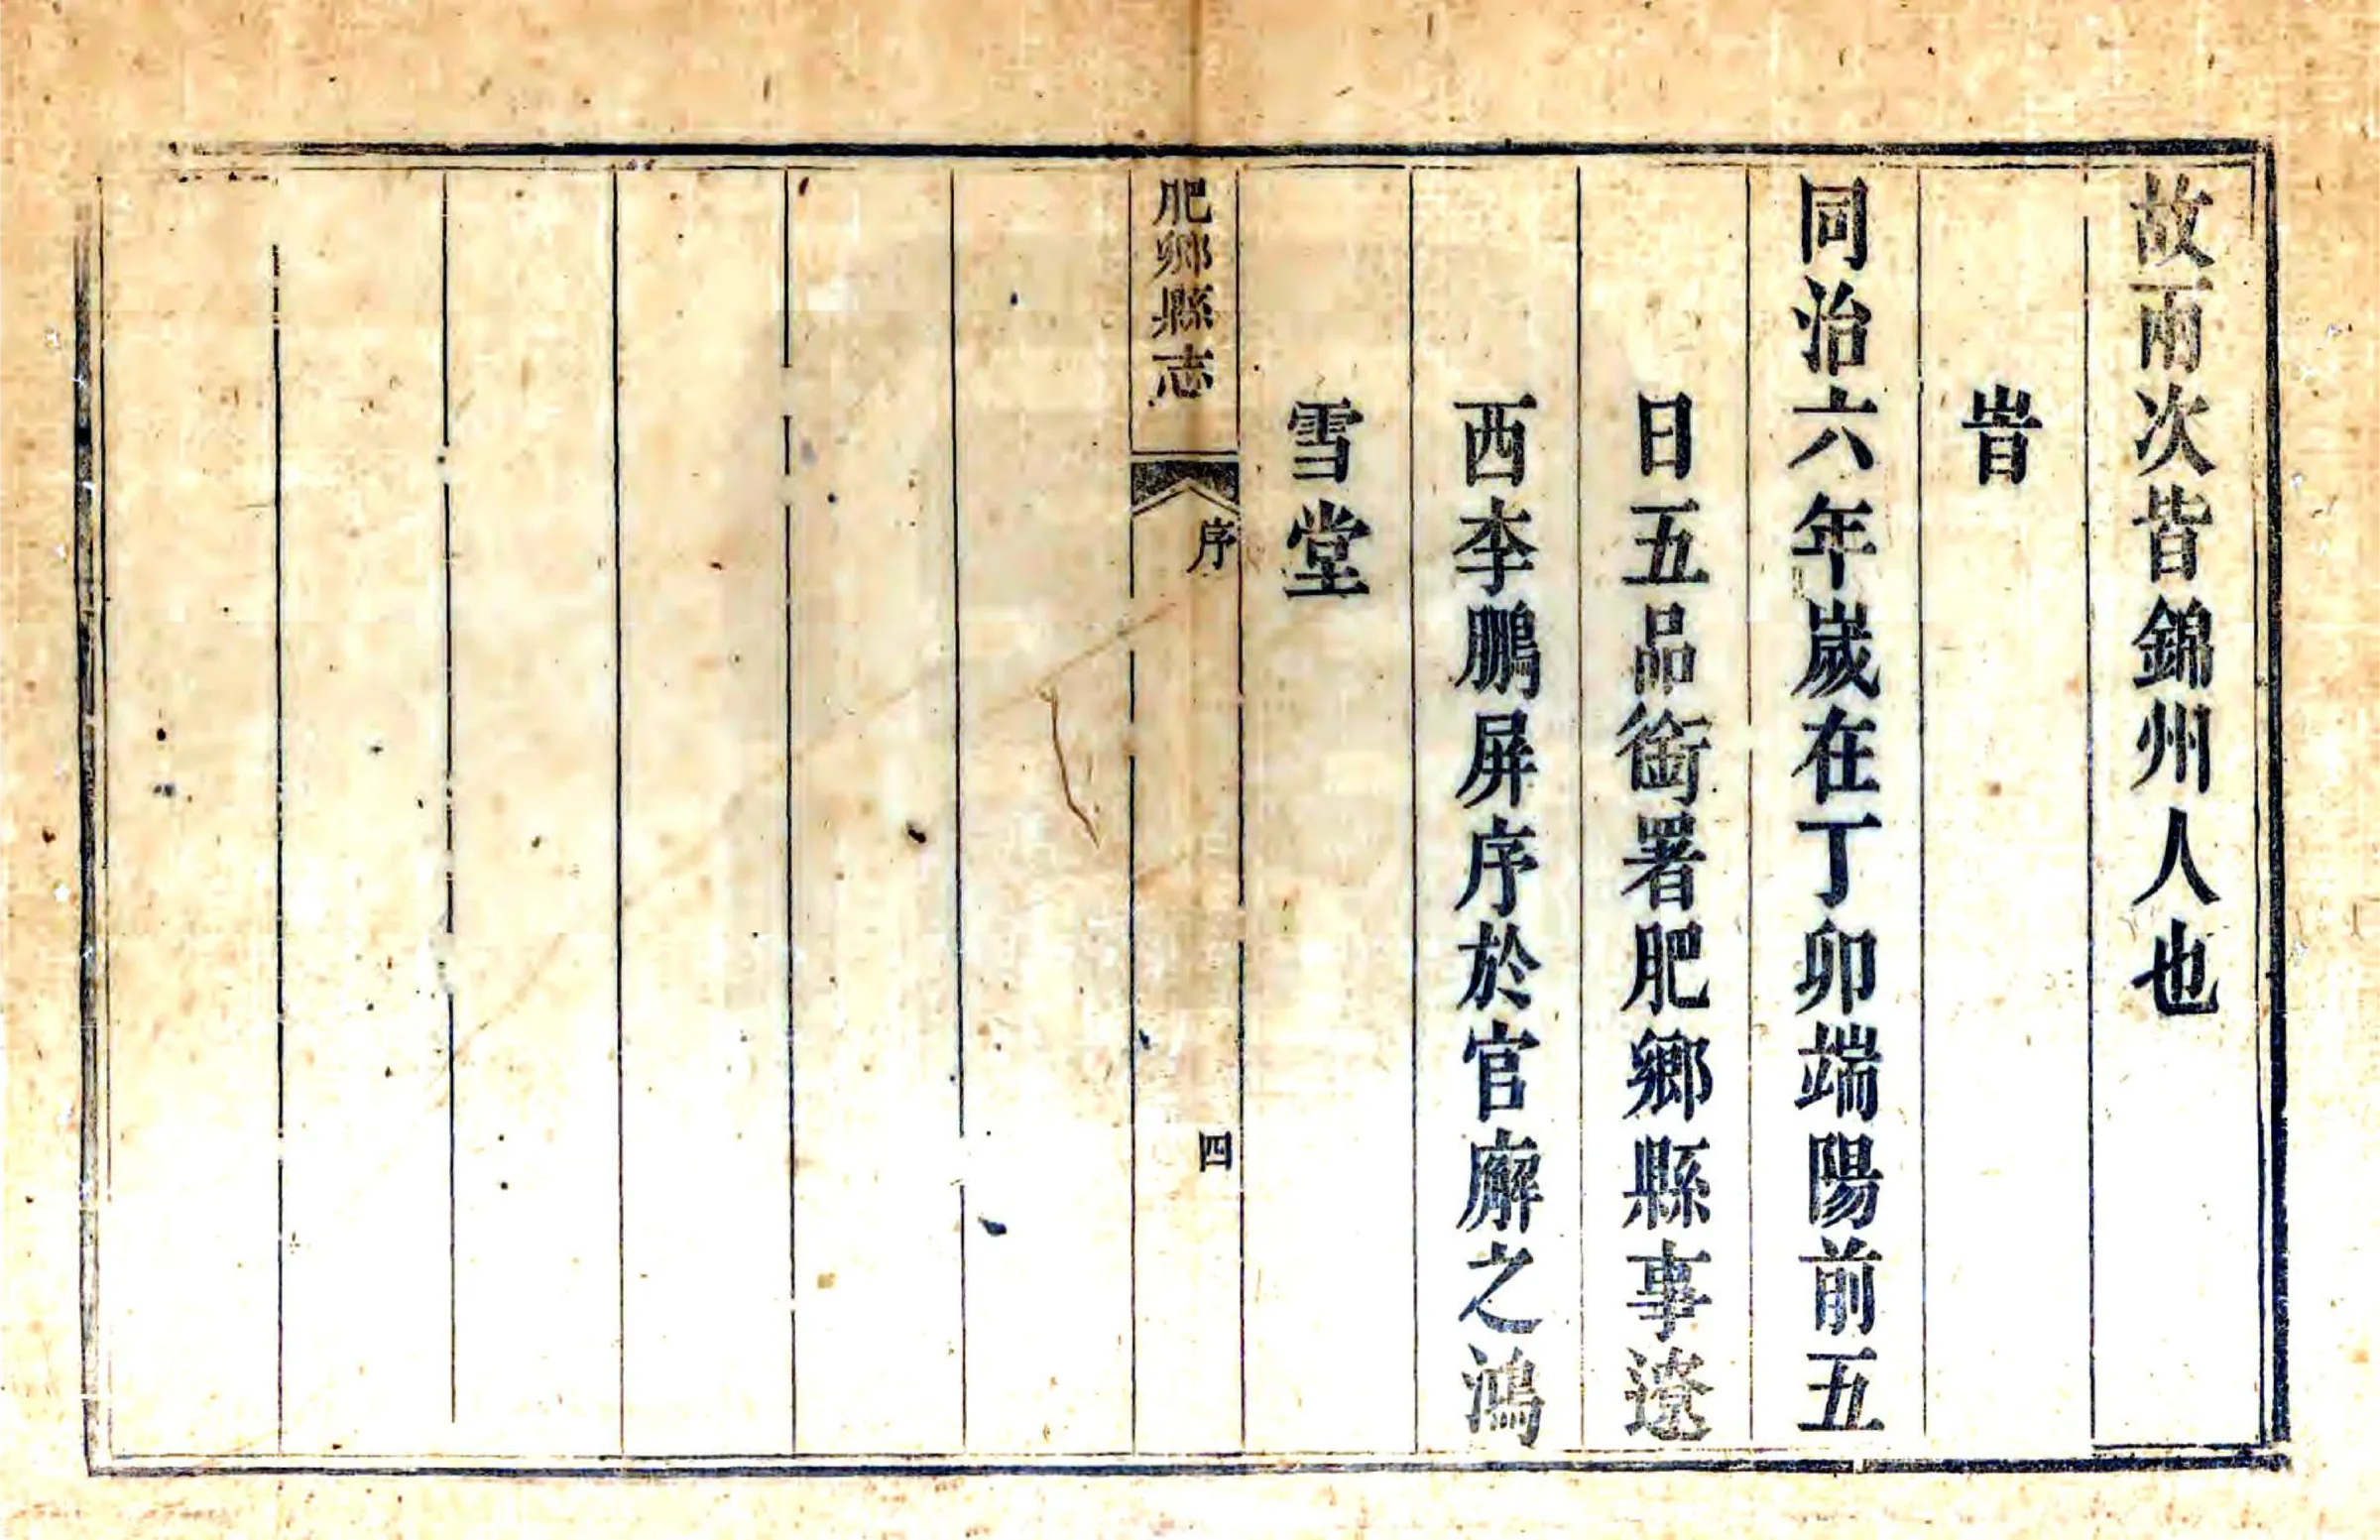 故兩次皆錦州人也
旹
同治六年歲在丁卯端陽前五
日五品銜署肥鄉縣事遼
西李鵬屏序於官廨之鴻
雪堂
肥鄉縣志
序
四